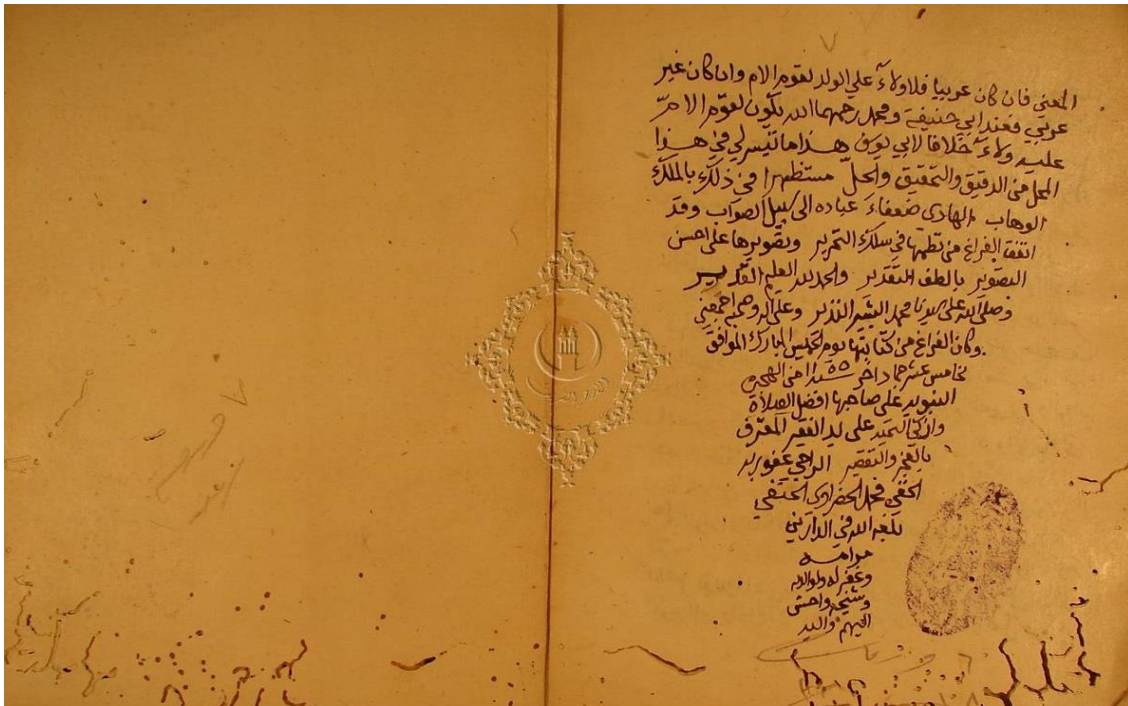 المعني فان كان عربيا فلا ولاء علي الولد لقوم الام وان كان غير
عربي فعند ابي حنيفة ومحمد رحمهما الله يكون لقوم الام
عليه ولاء خلافا لابي يوسف هذا ما تيسر لي في هذا
المحل من الدقيق والتحقيق والحل مستظهرا في ذلك بالملك
الوهاب الهادى ضعفاء عباده الى سبيل الصواب وقد
اتفق الفراغ من نظمها في سلك التحرير وتصويرها على احسن
التصوير بالطف التقدير والحمد لله العليم القدير
وصلى الله على سيدنا محمد البشير النذير وعلى اله وصحبه اجمعين
وكان الفراغ من كتابتها يوم الخميس المبارك الموافق
لخامس عشر جماد اخر سنة من الهجرة
النبويه على صاحبها افضل الصلاة
وازكى التحيه على يد الفقير المعترف
بالعجز والتقصير الراجي عفو ربه
الخفي محمد الحنفي
بلغه الله في الدارين
مرامه
وغفر له ولوالديه
وشيخه واحسن
اليهم واليه